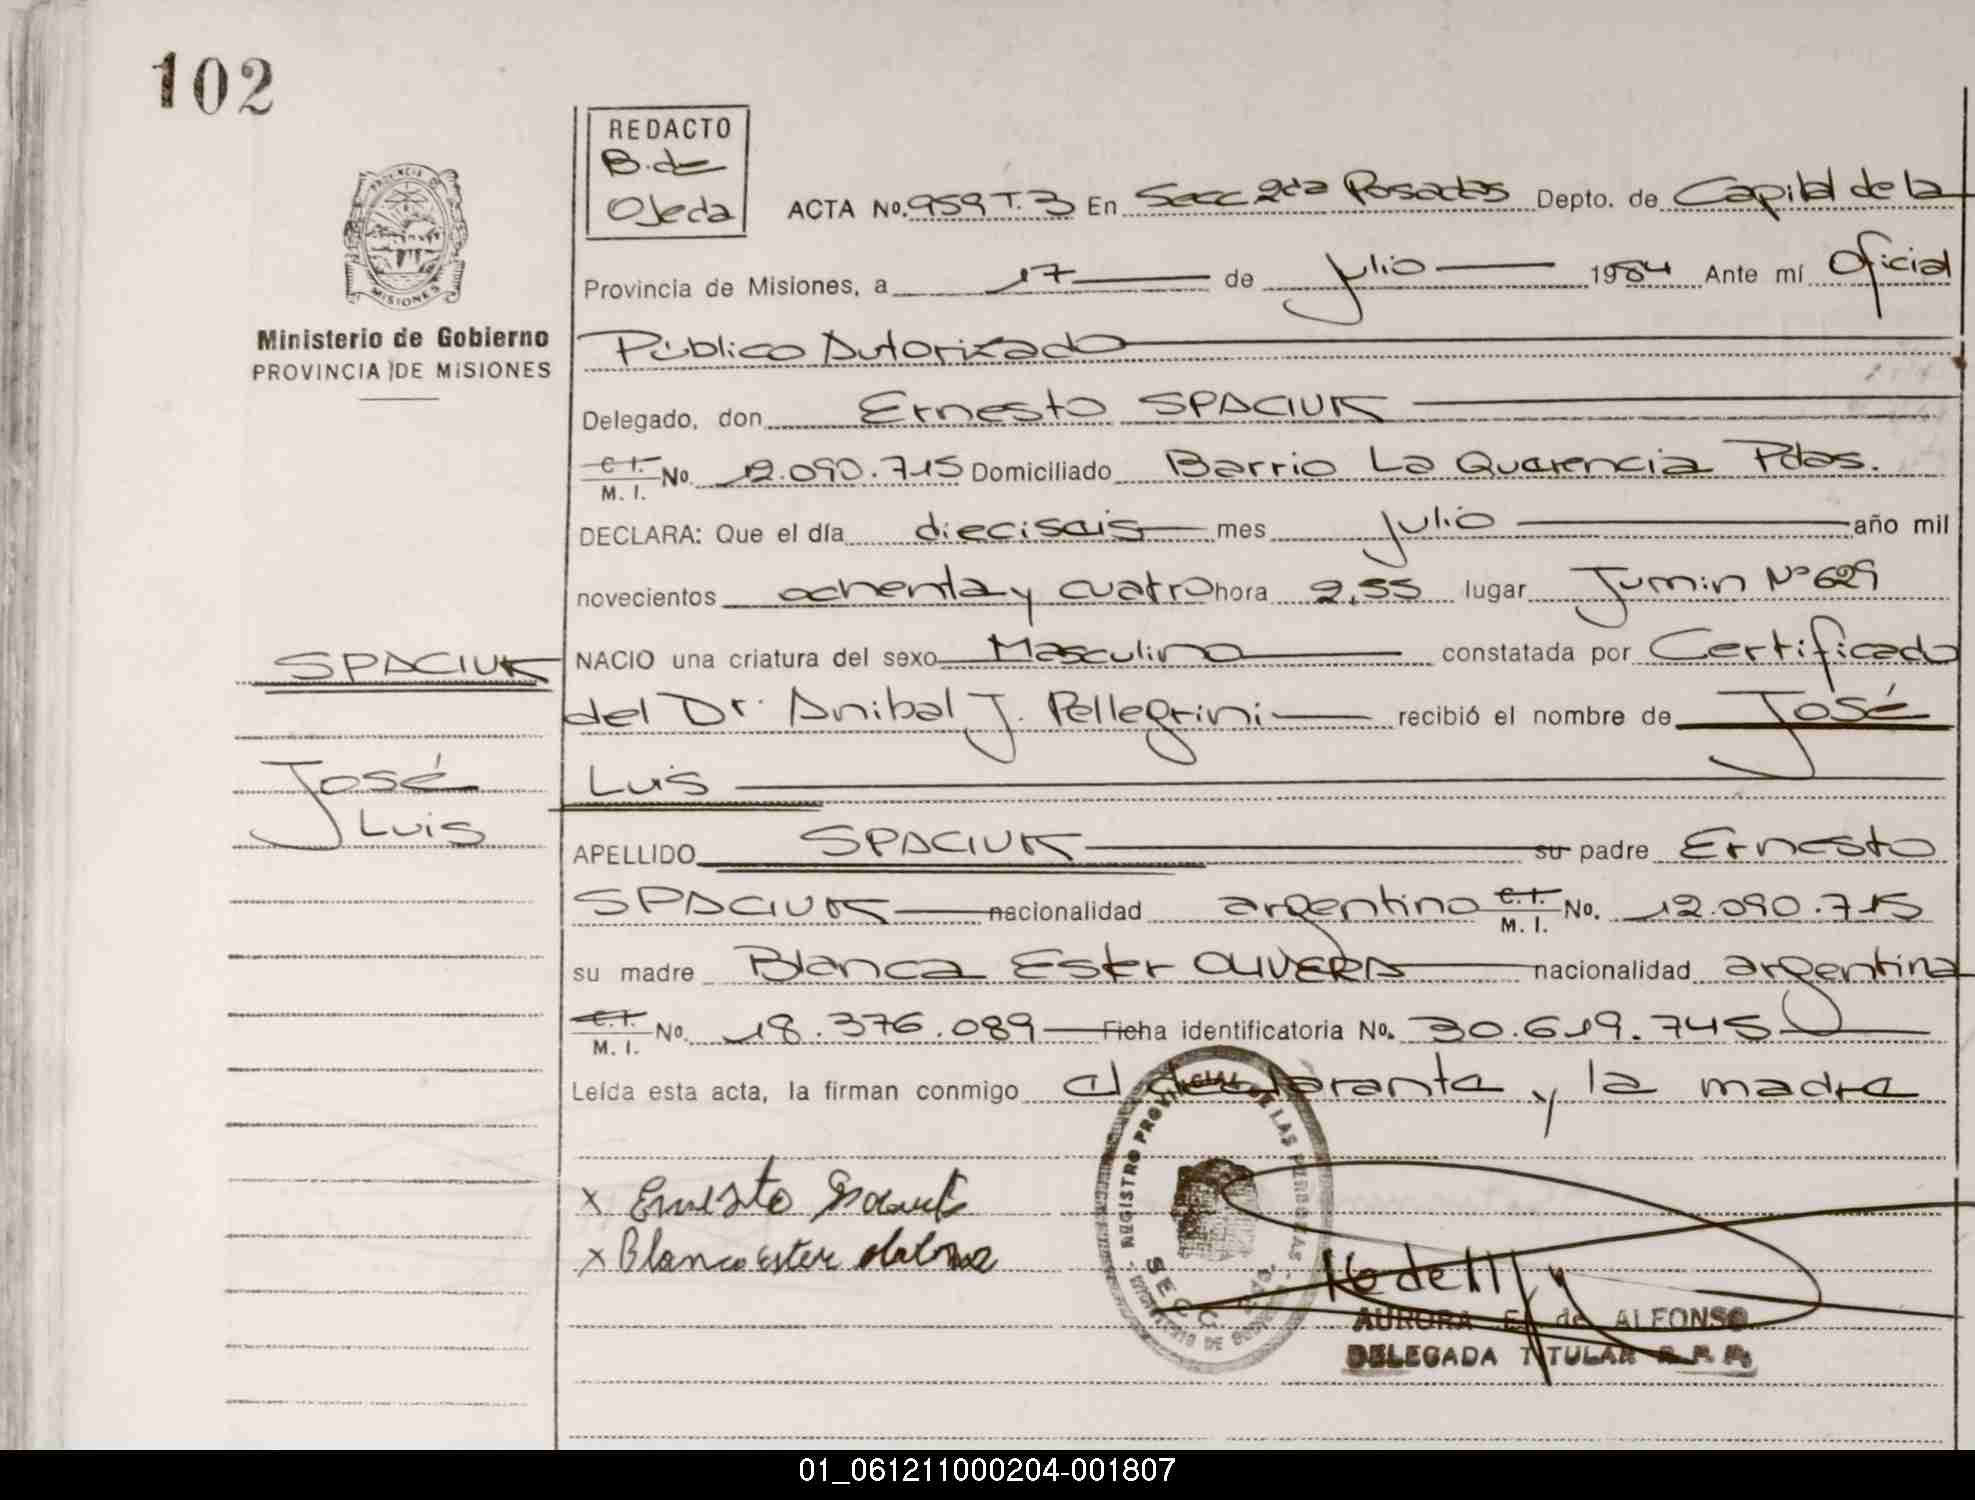 102
PROVINCIA DE
MISIONES
Ministerio de Gobierno
PROVINCIA DE MISIONES
REDACTO
B. de
Ojeda
ACTA No. 959 T.3 En Secc 2da Posadas Depto. de Capital de la
Provincia de Misiones, a 17 de Julio 1984 Ante mí Oficial
Público Autorizado
Delegado, don Ernesto SPACIUK
C.I. M.I. No. 12.090.715 Domiciliado Barrio La Querencia Pdas.
DECLARA: Que el día dieciseis mes julio año mil
novecientos ochenta y cuatro hora 2,55 lugar Junin Nº 629
NACIO una criatura del sexo Masculino constatada por Certificado
del Dr. Anibal J. Pellegrini recibió el nombre de José
Luis
APELLIDO SPACIUK su padre Ernesto
SPACIUK nacionalidad argentino C.I. M.I. No. 12.090.715
su madre Blanca Ester OLIVERA nacionalidad argentina
C.I. M.I. No. 18.376.089 Ficha identificatoria No. 30.619.745
Leída esta acta, la firman conmigo el declarante y la madre
SPACIUK
José
Luis
x Ernesto Spaciuk
x Blanca Ester
REGISTRO PROVINCIAL DE LAS PERSONAS
SECC.
AURORA E. de ALFONSO
DELEGADA TITULAR R.P.P.
01_061211000204-001807